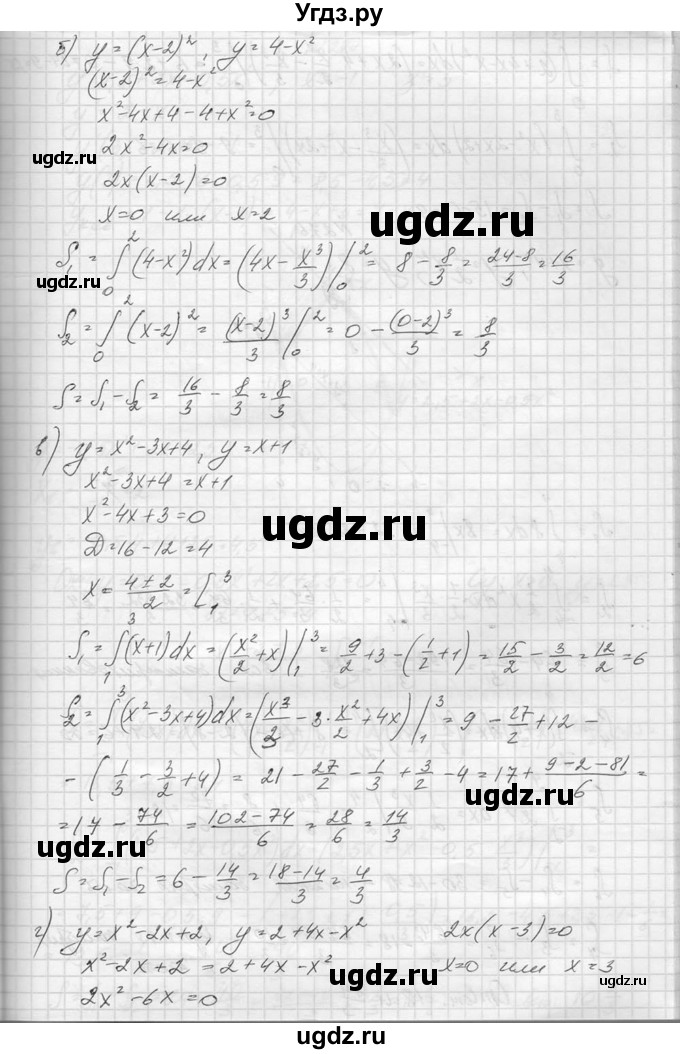 Угдз.ру
б) y=(x-2)², y=4-x²
(x-2)²=4-x²
x²-4x+4-4+x²=0
2x²-4x=0
ugdz.ru
ugdz.ru
2x(x-2)=0
x=0 или x=2
ugdz.ru
S₁=∫₀²(4-x²)dx=(4x-x³/3)|₀²=8-8/3=(24-8)/3=16/3
ugdz.ru
S₂=∫₀²(x-2)²=(x-2)³/3|₀²=0-(0-2)³/3=8/3
S=S₁-S₂=16/3-8/3=8/3
в) y=x²-3x+4, y=x+1
x²-3x+4=x+1
x²-4x+3=0
ugdz.ru
Д=16-12=4
x=(4±2)/2=[3 1
S₁=∫₁³(x+1)dx=(x²/2+x)|₁³=9/2+3-(1/2+1)=15/2-3/2=12/2=6
ugdz.ru
S₂=∫₁³(x²-3x+4)dx=(x³/3-3·x²/2+4x)|₁³=9-27/2+12-
-(1/3-3/2+4)=21-27/2-1/3+3/2-4=17+(9-2-81)/6=
ugdz.ru
=17-74/6=(102-74)/6=28/6=14/3
ugdz.ru
S=S₁-S₂=6-14/3=(18-14)/3=4/3
ugdz.ru
г) y=x²-2x+2, y=2+4x-x² 2x(x-3)=0
x²-2x+2=2+4x-x² x=0 или x=3
2x²-6x=0
ugdz.ru
ugdz.ru
ugdz.ru